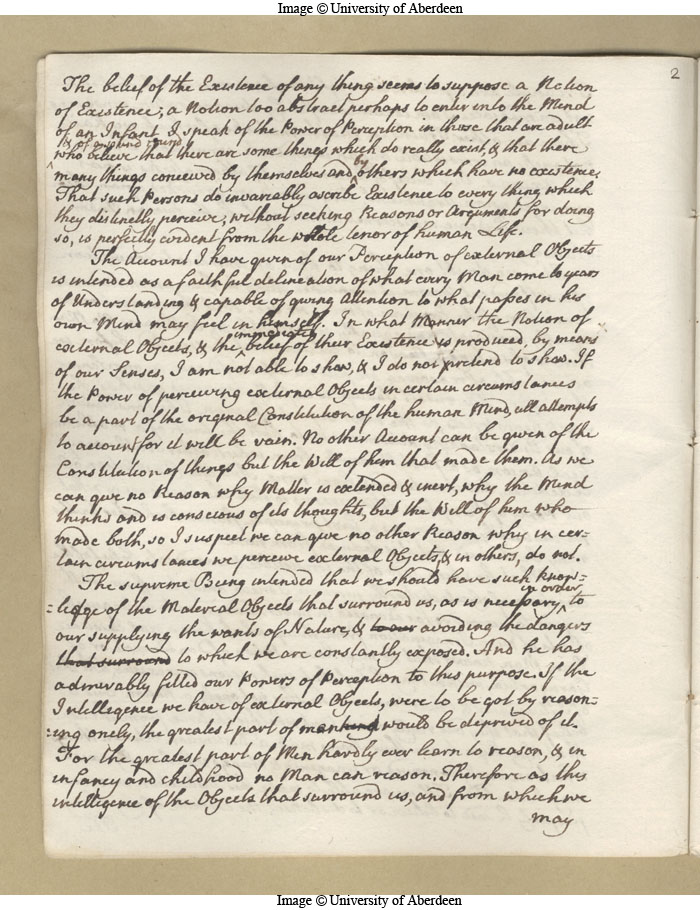 Image © University of Aberdeen
2
The belief of the Existence of any thing seems to suppose a Notion
of Existence; a Notion too abstract perhaps to enter into the Mind
of an Infant. I speak of the Power of Perception in those that are adult
& of a sound mind
who believe that there are some things which do really exist, & that there
by
many things conceived by themselves and others which have no existence.
That such Persons do invariably ascribe Existence to every thing which
they distinctly perceive, without seeking Reasons or Arguments for doing
so, is perfectly evident from the whole tenor of human Life.
The Account I have given of our Perception of external Objects
is intended as a faithful delineation of what every Man come to years
of Understanding & capable of giving Attention to what passes in his
own Mind may feel in himself. In what Manner the Notion of
immediate
external Objects, & the belief of their Existence is produced, by means
of our Senses, I am not able to shew, & I do not pretend to shew. If
the Power of perceiving external Objects in certain circumstances
be a part of the original Constitution of the human Mind, all attempts
to account for it will be vain. No other Account can be given of the
Constitution of things but the Will of him that made them. As we
can give no Reason why Matter is extended & inert, why the Mind
thinks and is conscious of its thoughts, but the Will of him who
made both, so I suspect we can give no other Reason why in cer-
tain circumstances we perceive external Objects, & in others, do not.
The supreme Being intended that we should have such know=
in order
=ledge of the Material Objects that surround us, as is necessary to
our supplying the wants of Nature, & to our avoiding the dangers
that surround to which we are constantly exposed. And he has
admirably fitted our Powers of Perception to this purpose. If the
Intelligence we have of external Objects, were to be got by reason=
=ing onely, the greatest part of mankind would be deprived of it.
For the greatest part of Men hardly ever learn to reason, & in
infancy and childhood no Man can reason. Therefore as this
intelligence of the Objects that surround us, and from which we
may
Image © University of Aberdeen